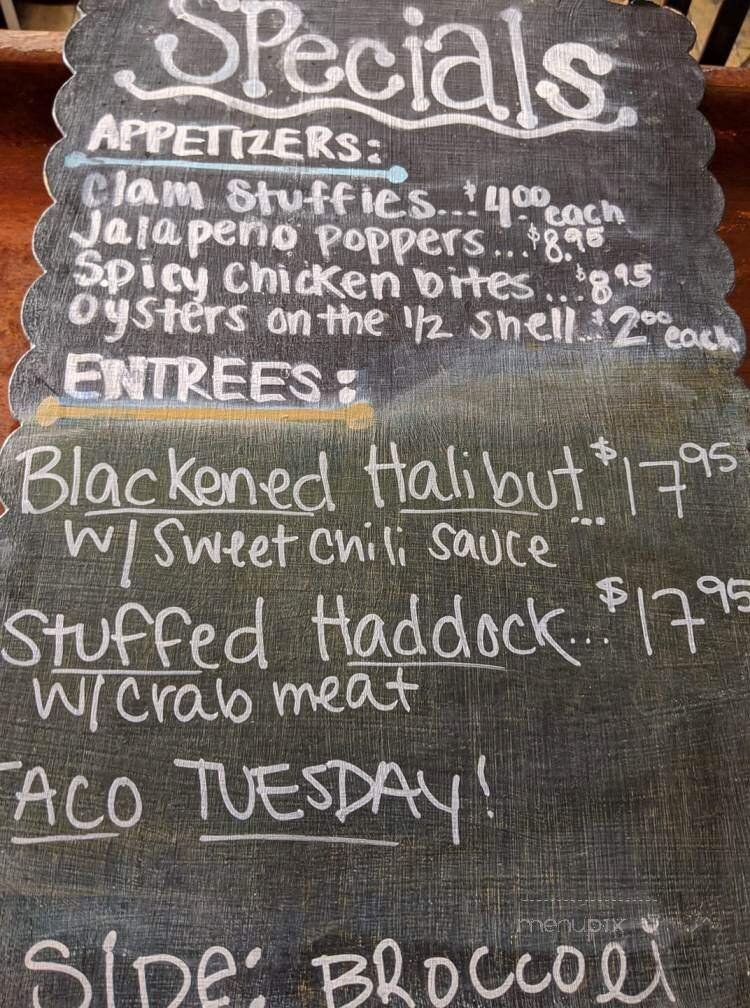 Specials
APPETIZERS:
Clam Stuffies...$4.00 each
Jalapeno poppers...$8.95
Spicy Chicken bites...$8.95
Oysters on the 1/2 shell...$2.00 each
ENTREES:
Blackened Halibut...$17.95
W/ Sweet Chili Sauce
Stuffed Haddock...$17.95
W/ Crab meat
TACO TUESDAY!
menupix
SIDE: BROCCOLI